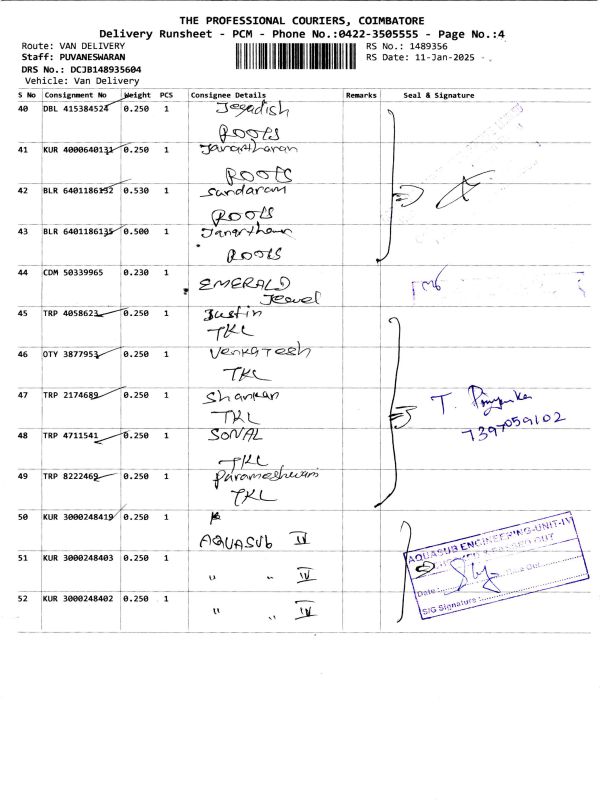 THE PROFESSIONAL COURIERS, COIMBATORE
Delivery Runsheet - PCM - Phone No.:0422-3505555 - Page No.:4
Route: VAN DELIVERY
Staff: PUVANESWARAN
DRS No.: DCJB148935604
Vehicle: Van Delivery
RS No.: 1489356
RS Date: 11-Jan-2025
S No Consignment No Weight PCS Consignee Details Remarks Seal & Signature
40 DBL 415384524 0.250 1 Jegadish
ROOTS
41 KUR 4000640131 0.250 1 Janartharan
ROOTS
42 BLR 6401186132 0.530 1 Sundaram
ROOTS
43 BLR 6401186135 0.500 1
ROOTS
44 CDM 50339965 0.230 1 EMERALD
Jewel
45 TRP 4058623 0.250 1 Justin
TKL
46 OTY 3877953 0.250 1 Venkatesh
TKL
47 TRP 2174689 0.250 1 Shankar
TKL
T. Priyanka
7397059102
48 TRP 4711541 0.250 1 SONAL
TKL
49 TRP 8222469 0.250 1 Parameshwari
TKL
50 KUR 3000248419 0.250 1
AQUASUB IV
51 KUR 3000248403 0.250 1 " " IV
52 KUR 3000248402 0.250 1 " " IV
AQUASUB ENGINEERING-UNIT-IV
Time Out
Date:
SIG Signature: